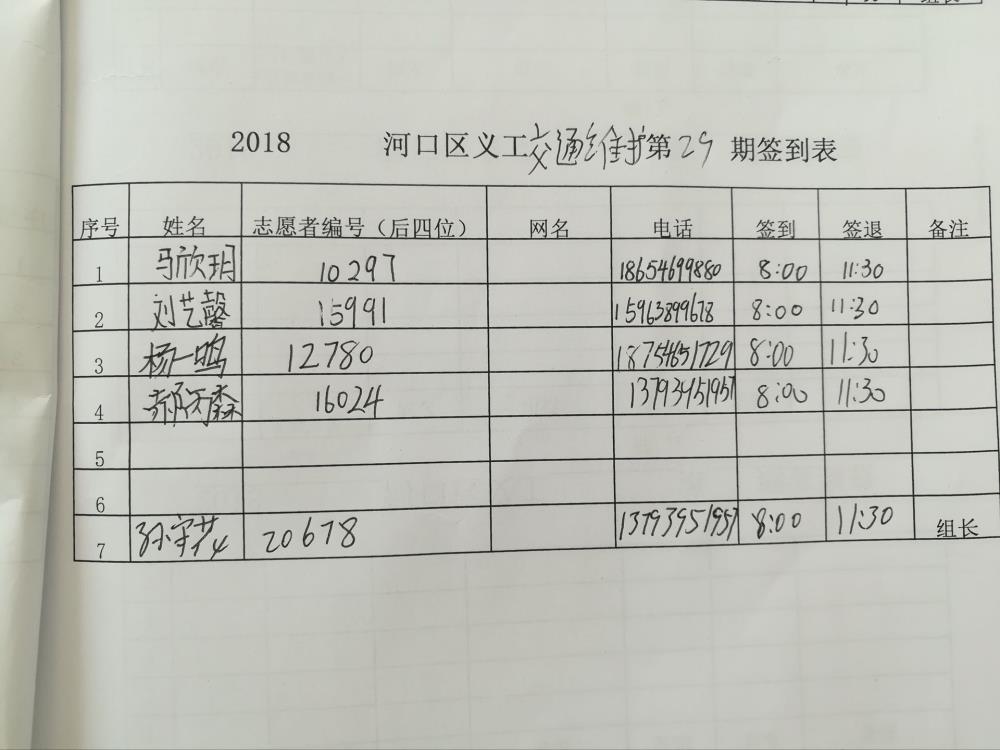 组长
2018 河口区义工交通维护第29期签到表
序号 姓名 志愿者编号（后四位） 网名 电话 签到 签退 备注
1 马欣玥 10297 18654699880 8:00 11:30
2 刘艺馨 15991 15963899678 8:00 11:30
3 杨一鸣 12780 18754651729 8:00 11:30
4 16024 13793951957 8:00 11:30
5
6
7 20678 13793951957 8:00 11:30 组长